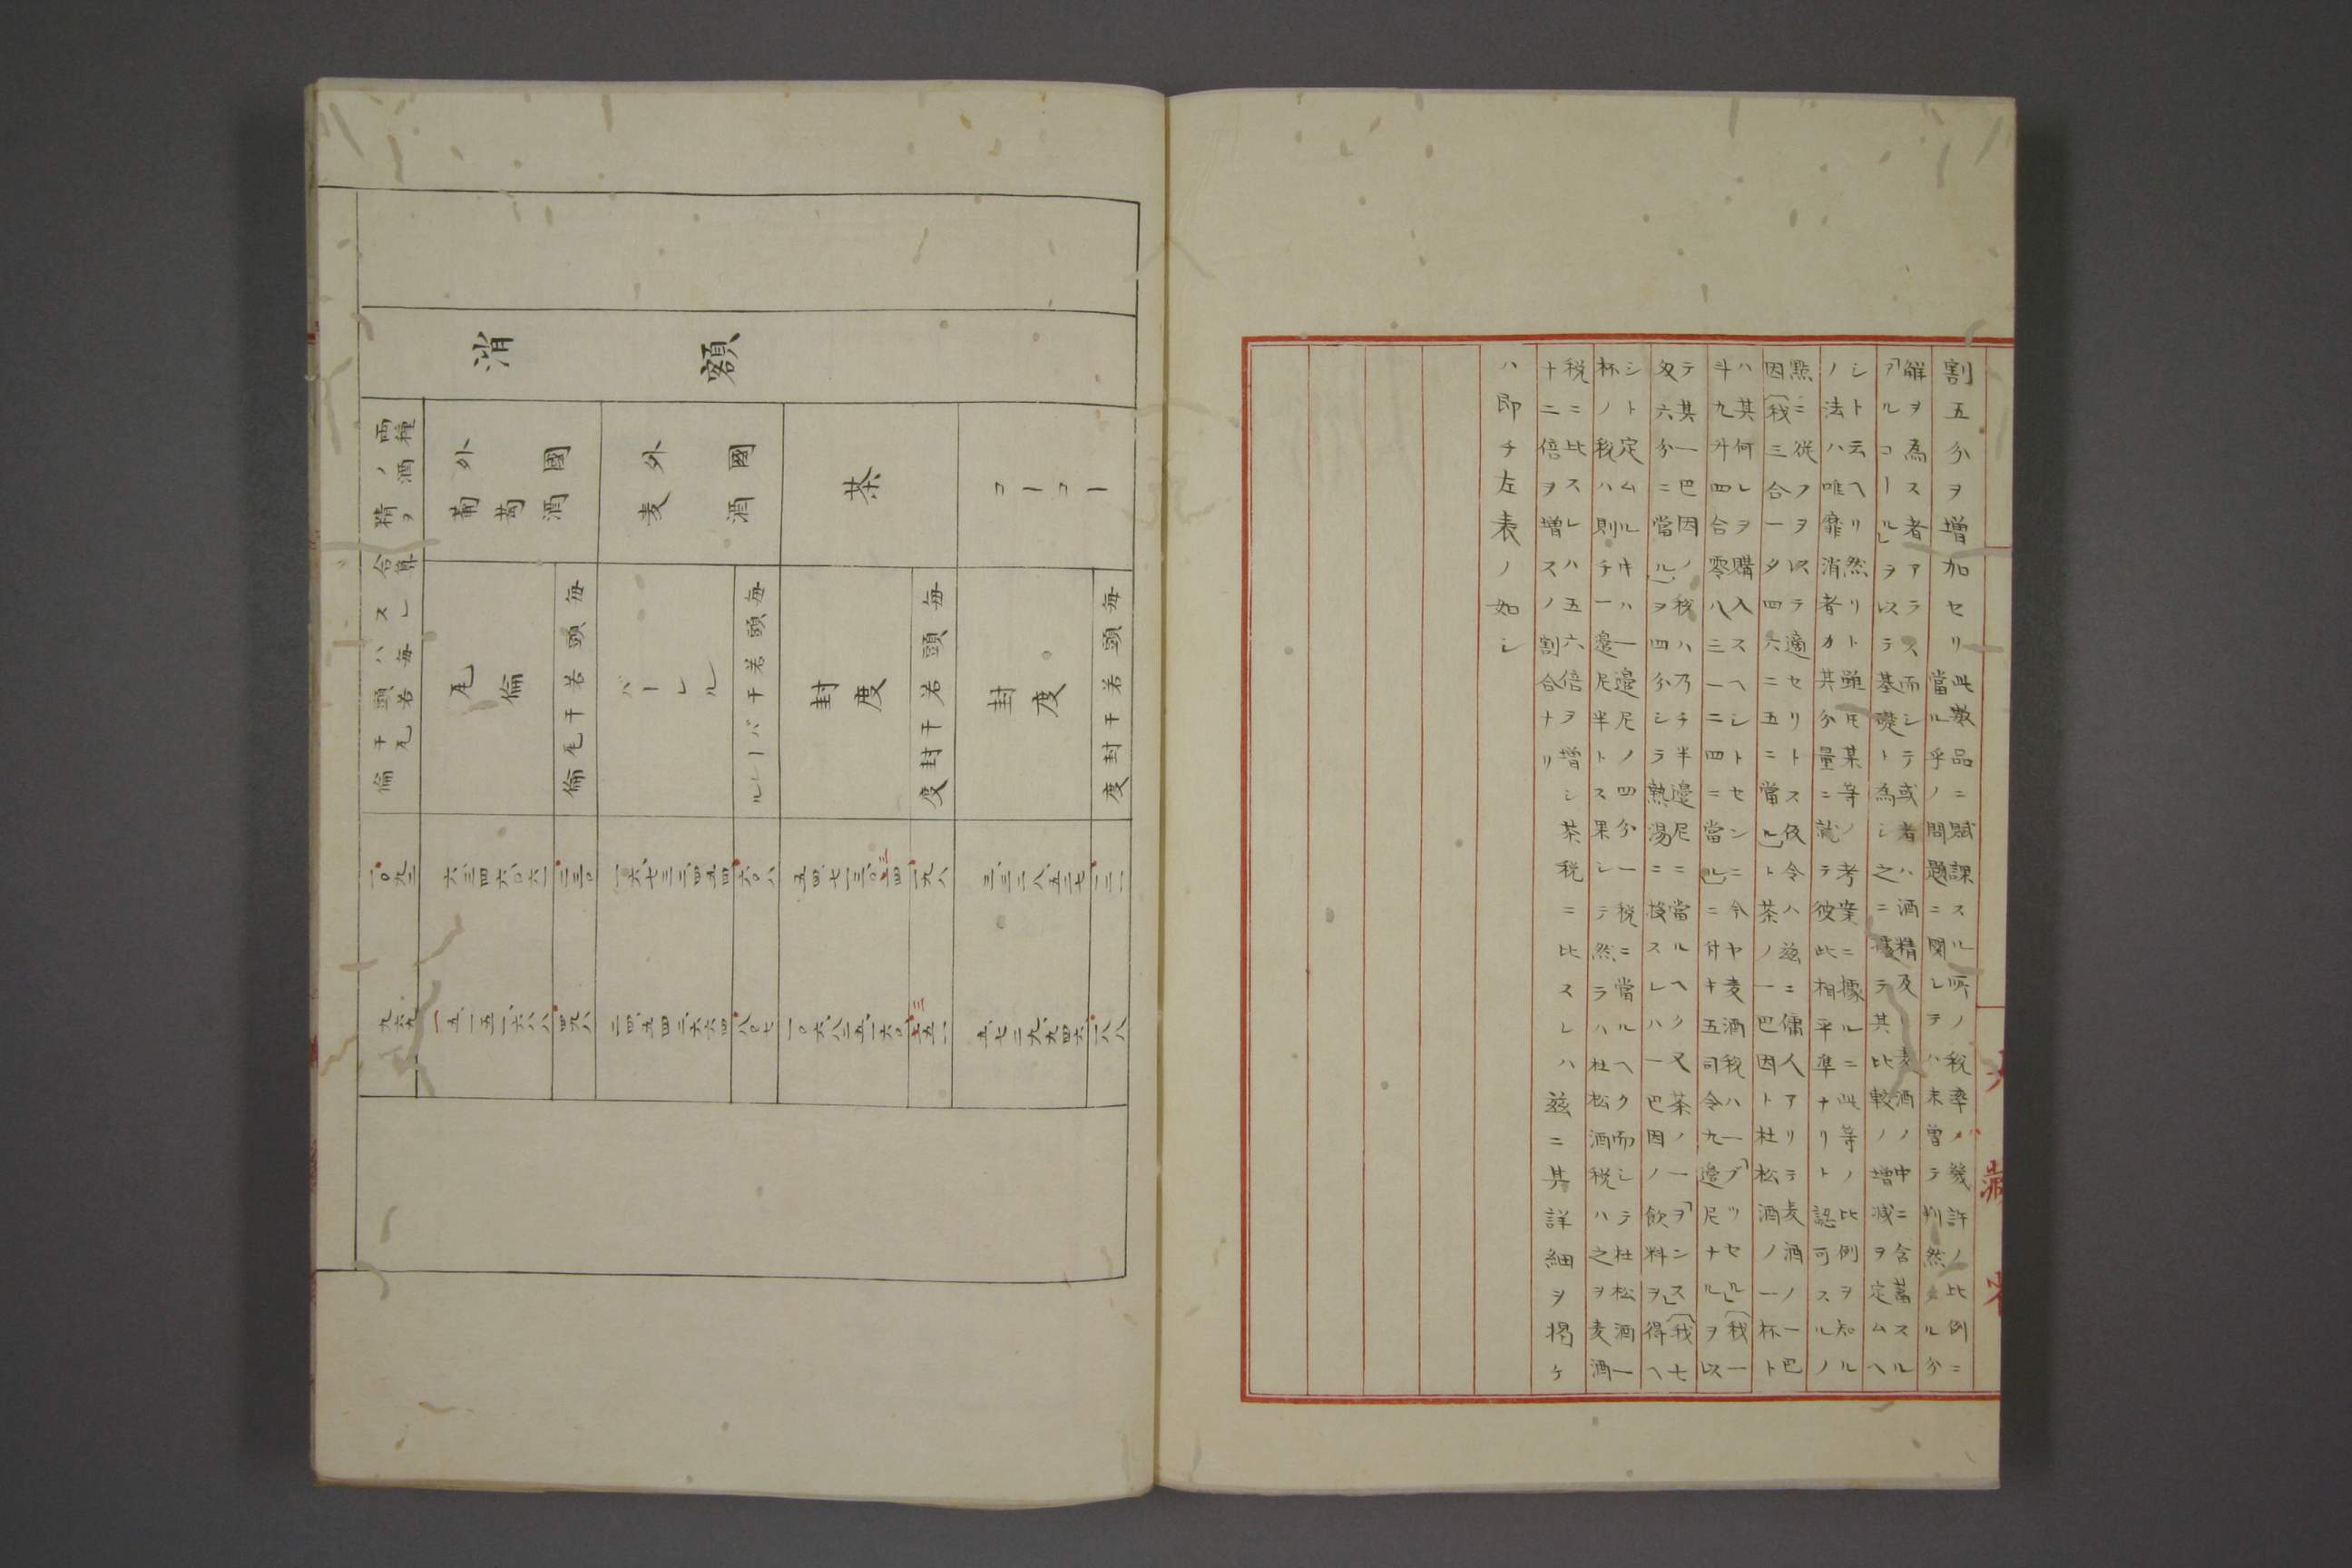 割五分ヲ増加セリ
此数品ニ賦課スル所ノ税率ノ幾許ノ比例ニ
當ル乎ノ問題ニ関レテハ未曽テ判然タル分
解ヲ為ス者アラス而シテ或者ハ酒精及ヒ麦酒ノ中ニ含蓄スル
「アルコール」ヲ以テ基礎ト為シ之ニ據テ其比較ノ増减ヲ定ムヘ
シト云ヘリ然リト雖モ某等ノ考案ニ據ルニ此等ノ比例ヲ知ル
ノ法ハ唯靡消者カ其分量ニ就テ彼此相平準ナリト認可スルノ
點ニ従フヲ以テ適セリトス仮令ハ茲ニ傭人アリテ麦酒ノ一巴
因〔我三合一夕四六二五ニ當ル〕ト茶ノ一巴因ト杜松酒ノ一杯ト
ハ其何レヲ購入スヘシトセンニ今ヤ麦酒税ハ一「ブツセル」〔我一
斗九升四合零八三一二四ニ當ル〕ニ付キ五司令九邉尼ナルヲ以
テ其一巴因ノ税ハ乃チ半邉尼ニ當ルヘク又茶ノ一「ヲンス」〔我七
匁六分ニ當ル〕ヲ四分シラ熟湯ニ投スレハ一巴因ノ飲料ヲ得ヘ
シト定ムルキハ一邉尼ノ四分一税ニ當ルヘク而シテ杜松酒一
杯ノ税ハ則チ一邉尼半トス果シテ然ラハ杜松酒税ハ之ヲ麦酒
税ニ比スレハ五六倍ヲ増シ茶税ニ比スレハ
十二倍ヲ増スノ割合ナリ
茲ニ其詳細ヲ掲ケ
ハ即チ左表ノ如シ
額
消
コーコー
毎頭若干封度
封度
三、三二八、五二七
茶
毎頭若干封度
封度
五四、七一三、〇三四
外國麦酒
毎頭若干バーレル
バーレル
一六、七三二、四五四
二四、五四二、六六四
外國葡萄酒
毎頭若干瓦倫
瓦倫
六、三四六、〇六一
両種ノ酒精ヲ合算スレハ毎頭若干瓦倫